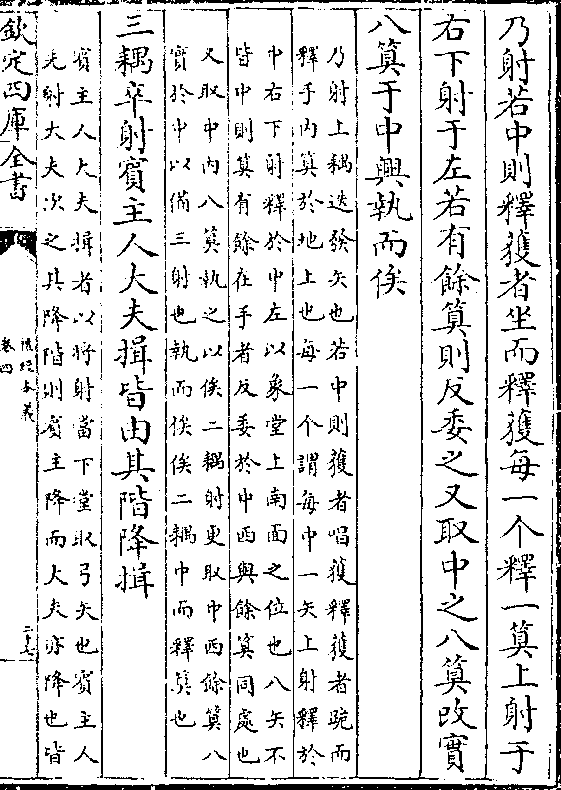 乃射若中則釋獲者坐而釋獲每一个釋一筭上射于
右下射于左若有餘筭則反委之又取中之八筭改實
八筭于中興執而俟
乃射上耦迭發矢也若中則獲者唱獲釋獲者跪而
釋手内筭於地上也每一个謂每中一矢上射釋於
中右下射釋於中左以象堂上南面之位也八矢不
皆中則筭有餘在手者反委於中西與餘筭同處也
又取中内八筭執之以俟二耦射更取中西餘筭八
實於中以備三射也執而俟俟二耦中而釋筭也
三耦卒射賓主人大夫揖皆由其階降揖
賓主人大夫揖者以將射當下堂取弓矢也賓主人
先射大夫次之其降階則賓主降而大夫亦降也皆
欽定四庫全書
禮經本義
卷四
二十七